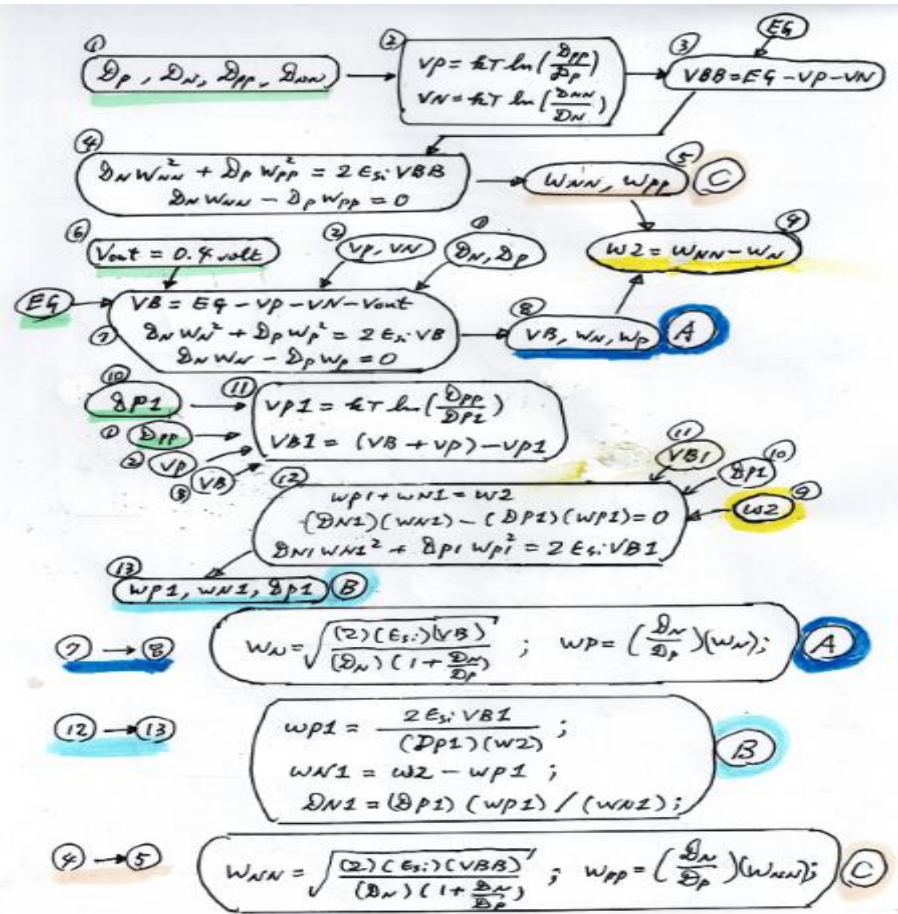 EG
① ② ③
DP , DN , DPP , DNN
VP = kT ln(DPP/DP)
VN = kT ln(DNN/DN)
VBB = EG - VP - VN
④
DN WNN² + DP WPP² = 2 ESi VBB
DN WNN - DP WPP = 0
⑤
WNN, WPP C
⑥
Vout = 0.4 volt
② VP, VN
① DN, DP
⑨
W2 = WNN - WN
EG
⑦
VB = EG - VP - VN - Vout
DN WN² + DP WP² = 2 ESi VB
DN WN - DP WP = 0
⑧
VB, WN, WP A
⑩
DP1
① DPP
② VP
⑧ VB
⑪
VP1 = kT ln(DPP/DP1)
VB1 = (VB + VP) - VP1
⑪
VB1
⑩
DP1
⑨
W2
⑫
WP1 + WN1 = W2
(DN1)(WN1) - (DP1)(WP1) = 0
DN1 WN1² + DP1 WP1² = 2 ESi VB1
⑬
WP1, WN1, DP1 B
⑦ → ⑧ WN = √((2)(ESi)(VB) / (DN)(1 + DN/DP)) ; WP = (DN/DP)(WN); A
⑫ → ⑬
WP1 = 2 ESi VB1 / (DP1)(W2) ;
WN1 = W2 - WP1 ;
DN1 = (DP1)(WP1) / (WN1);
B
④ → ⑤ WNN = √((2)(ESi)(VBB) / (DN)(1 + DN/DP)) ; WPP = (DN/DP)(WNN); C